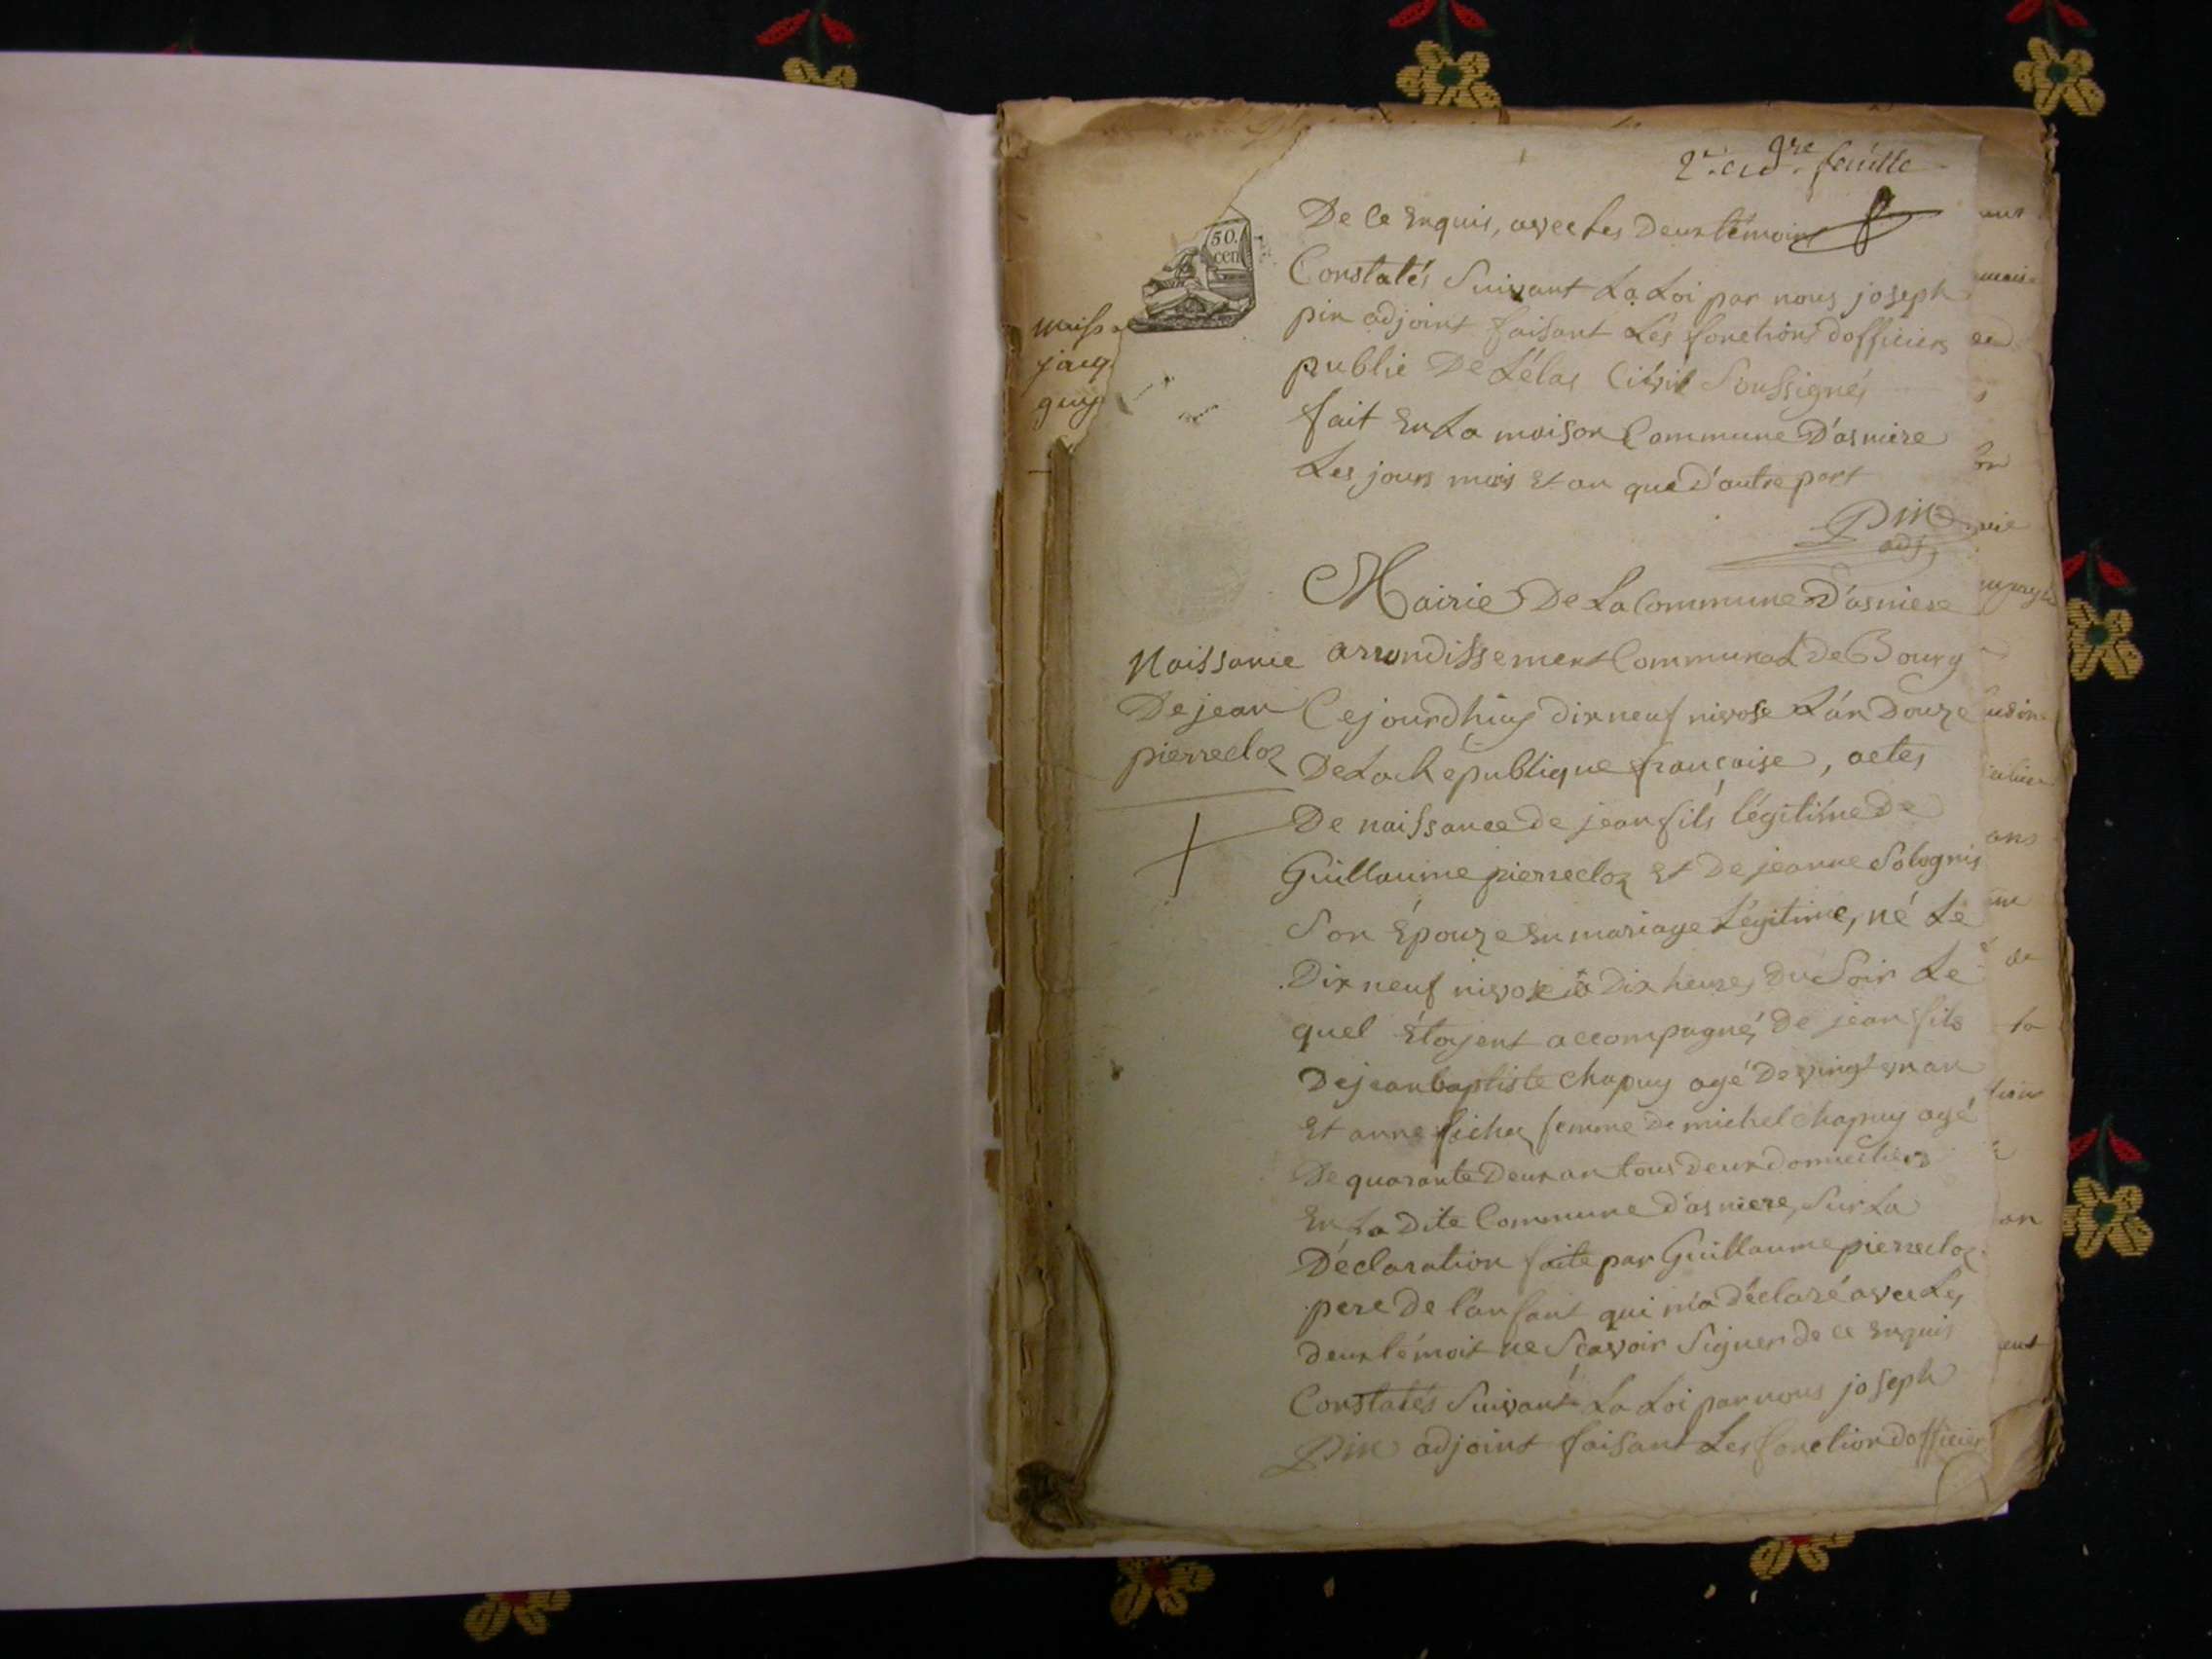 feuille
50.
cen
De Ce Enquis, avec les Deux témoins
Constatés Suivant La Loi par nous joseph
pin adjoint faisant Les fonctions dofficiers
public De L'état Civil Soussignés
fait En La maison Commune D'asniere
Les jours mois Et an que D'autre part
Pin
adj
Naiss
jaq
guy
Mairie De La Commune D'asniere
Naissance
De jean
pierrecloz
arrondissement Communal De Bourg
Cejourdhuy dix neuf nivose L'an Douze
De La République française, actes
De naissance de jean fils légitime De
Guillaume pierrecloz Et De jeanne Solognis
Son Épouze En mariage Légitime, né Le
Dix neuf nivose à Dix heures Du Soir Le
quel Étoyent accompagnés de jean fils
De jean baptiste Chapuy agé De vingt un an
Et anne femme de michel Chapuy agé
De quarante Deux an tous Deux Domiciliers
En La Dite Commune D'asniere, Sur La
Déclaration faite par Guillaume pierrecloz
pere De l'anfant qui m'a Déclaré avec Les
Deux témoit ne Sçavoir Signer de ce Enquis
Constatés Suivant La Loi par nous joseph
Pin adjoint faisant Les fonction dofficier